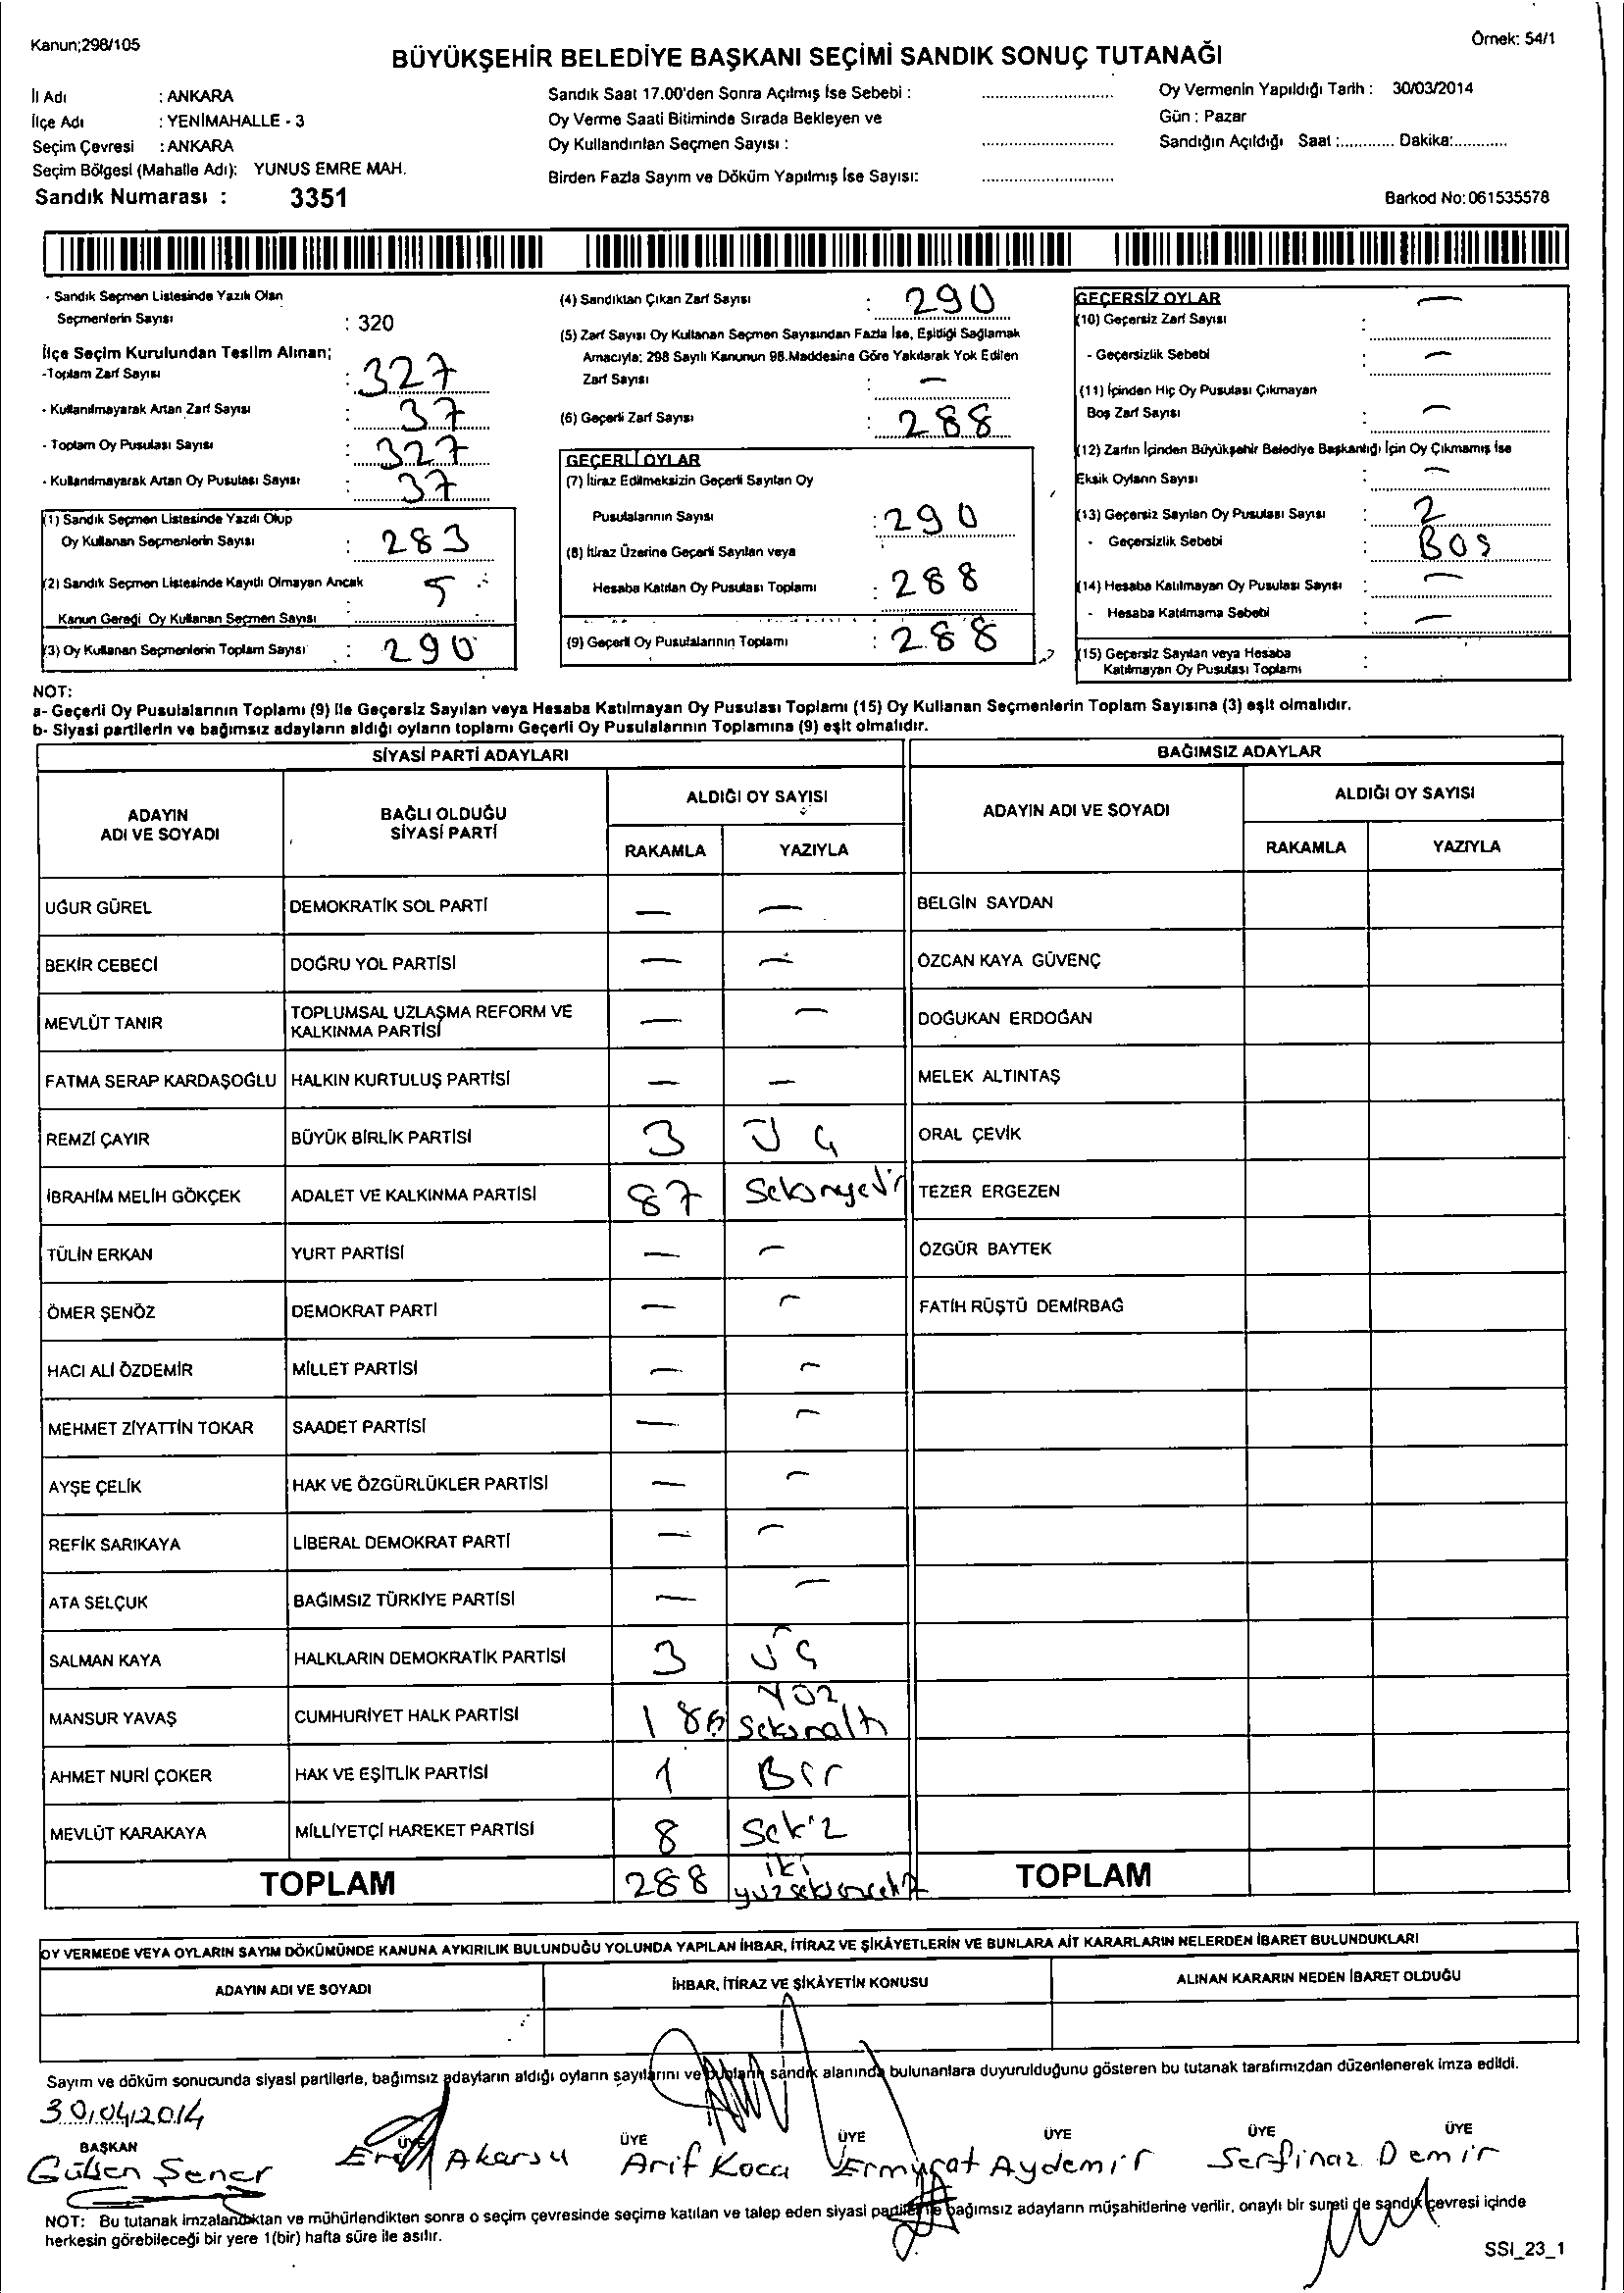 Kanun;298/105
Örnek: 54/1
BÜYÜKŞEHİR BELEDİYE BAŞKANI SEÇİMİ SANDIK SONUÇ TUTANAĞI
İl Adı : ANKARA
İlçe Adı : YENİMAHALLE - 3
Seçim Çevresi : ANKARA
Seçim Bölgesi (Mahalle Adı): YUNUS EMRE MAH.
Sandık Numarası : 3351
Sandık Saat 17.00'den Sonra Açılmış İse Sebebi :
Oy Verme Saati Bitiminde Sırada Bekleyen ve
Oy Kullandırılan Seçmen Sayısı :
Birden Fazla Sayım ve Döküm Yapılmış İse Sayısı:
Oy Vermenin Yapıldığı Tarih : 30/03/2014
Gün : Pazar
Sandığın Açıldığı Saat :............ Dakika:............
Barkod No:061535578
- Sandık Seçmen Listesinde Yazılı Olan
Seçmenlerin Sayısı : 320
İlçe Seçim Kurulundan Teslim Alınan;
-Toplam Zarf Sayısı : 327
- Kullanılmayarak Artan Zarf Sayısı : 37
- Toplam Oy Pusulası Sayısı : 327
- Kullanılmayarak Artan Oy Pusulası Sayısı : 37
(1) Sandık Seçmen Listesinde Yazılı Olup
Oy Kullanan Seçmenlerin Sayısı : 283
(2) Sandık Seçmen Listesinde Kayıtlı Olmayan Ancak
Kanun Gereği Oy Kullanan Seçmen Sayısı : 5
(3) Oy Kullanan Seçmenlerin Toplam Sayısı : 290
(4) Sandıktan Çıkan Zarf Sayısı : 290
(5) Zarf Sayısı Oy Kullanan Seçmen Sayısından Fazla İse, Eşitliği Sağlamak
Amacıyla; 298 Sayılı Kanunun 98.Maddesine Göre Yakılarak Yok Edilen
Zarf Sayısı : —
(6) Geçerli Zarf Sayısı : 288
GEÇERLİ OYLAR
(7) İtiraz Edilmeksizin Geçerli Sayılan Oy
Pusulalarının Sayısı : 290
(8) İtiraz Üzerine Geçerli Sayılan veya
Hesaba Katılan Oy Pusulası Toplamı : 288
(9) Geçerli Oy Pusulalarının Toplamı : 288
GEÇERSİZ OYLAR
(10) Geçersiz Zarf Sayısı : —
- Geçersizlik Sebebi : —
(11) İçinden Hiç Oy Pusulası Çıkmayan
Boş Zarf Sayısı : —
(12) Zarfın İçinden Büyükşehir Belediye Başkanlığı İçin Oy Çıkmamış İse
Eksik Oyların Sayısı : —
(13) Geçersiz Sayılan Oy Pusulası Sayısı : 2
- Geçersizlik Sebebi : BOŞ
(14) Hesaba Katılmayan Oy Pusulası Sayısı : —
- Hesaba Katılmama Sebebi : —
(15) Geçersiz Sayılan veya Hesaba
Katılmayan Oy Pusulası Toplamı :
NOT:
a- Geçerli Oy Pusulalarının Toplamı (9) ile Geçersiz Sayılan veya Hesaba Katılmayan Oy Pusulası Toplamı (15) Oy Kullanan Seçmenlerin Toplam Sayısına (3) eşit olmalıdır.
b- Siyasi partilerin ve bağımsız adayların aldığı oyların toplamı Geçerli Oy Pusulalarının Toplamına (9) eşit olmalıdır.
SİYASİ PARTİ ADAYLARI
BAĞIMSIZ ADAYLAR
ADAYIN ADI VE SOYADI
BAĞLI OLDUĞU SİYASİ PARTİ
ALDIĞI OY SAYISI
RAKAMLA YAZIYLA
ADAYIN ADI VE SOYADI
ALDIĞI OY SAYISI
RAKAMLA YAZIYLA
UĞUR GÜREL DEMOKRATİK SOL PARTİ — — BELGİN SAYDAN
BEKİR CEBECİ DOĞRU YOL PARTİSİ — — ÖZCAN KAYA GÜVENÇ
MEVLÜT TANIR TOPLUMSAL UZLAŞMA REFORM VE KALKINMA PARTİSİ — — DOĞUKAN ERDOĞAN
FATMA SERAP KARDAŞOĞLU HALKIN KURTULUŞ PARTİSİ — — MELEK ALTINTAŞ
REMZİ ÇAYIR BÜYÜK BİRLİK PARTİSİ 3 Üç ORAL ÇEVİK
İBRAHİM MELİH GÖKÇEK ADALET VE KALKINMA PARTİSİ 87 Seksenyedi TEZER ERGEZEN
TÜLİN ERKAN YURT PARTİSİ — — ÖZGÜR BAYTEK
ÖMER ŞENÖZ DEMOKRAT PARTİ — — FATİH RÜŞTÜ DEMİRBAĞ
HACI ALİ ÖZDEMİR MİLLET PARTİSİ — —
MEHMET ZİYATTİN TOKAR SAADET PARTİSİ — —
AYŞE ÇELİK HAK VE ÖZGÜRLÜKLER PARTİSİ — —
REFİK SARIKAYA LİBERAL DEMOKRAT PARTİ — —
ATA SELÇUK BAĞIMSIZ TÜRKİYE PARTİSİ — —
SALMAN KAYA HALKLARIN DEMOKRATİK PARTİSİ 3 Üç
MANSUR YAVAŞ CUMHURİYET HALK PARTİSİ 186 Yüz Seksenaltı
AHMET NURİ ÇOKER HAK VE EŞİTLİK PARTİSİ 1 Bir
MEVLÜT KARAKAYA MİLLİYETÇİ HAREKET PARTİSİ 8 Sekiz
TOPLAM 288 iki yüzseksensekiz TOPLAM
OY VERMEDE VEYA OYLARIN SAYIM DÖKÜMÜNDE KANUNA AYKIRILIK BULUNDUĞU YOLUNDA YAPILAN İHBAR, İTİRAZ VE ŞİKÂYETLERİN VE BUNLARA AİT KARARLARIN NELERDEN İBARET BULUNDUKLARI
ADAYIN ADI VE SOYADI İHBAR, İTİRAZ VE ŞİKÂYETİN KONUSU ALINAN KARARIN NEDEN İBARET OLDUĞU
Sayım ve döküm sonucunda siyasi partilerle, bağımsız adayların aldığı oyların sayılarını ve bunların sandık alanında bulunanlara duyurulduğunu gösteren bu tutanak tarafımızdan düzenlenerek imza edildi.
30/04/2014
BAŞKAN ÜYE ÜYE ÜYE ÜYE ÜYE ÜYE
Gülsen Şener Akarsu Arif Koca Yermurat Aydemir Serfinaz Demir
NOT: Bu tutanak imzalandıktan ve mühürlendikten sonra o seçim çevresinde seçime katılan ve talep eden siyasi partilerle bağımsız adayların müşahitlerine verilir, onaylı bir sureti de sandık çevresi içinde
herkesin görebileceği bir yere 1(bir) hafta süre ile asılır.
SSI_23_1